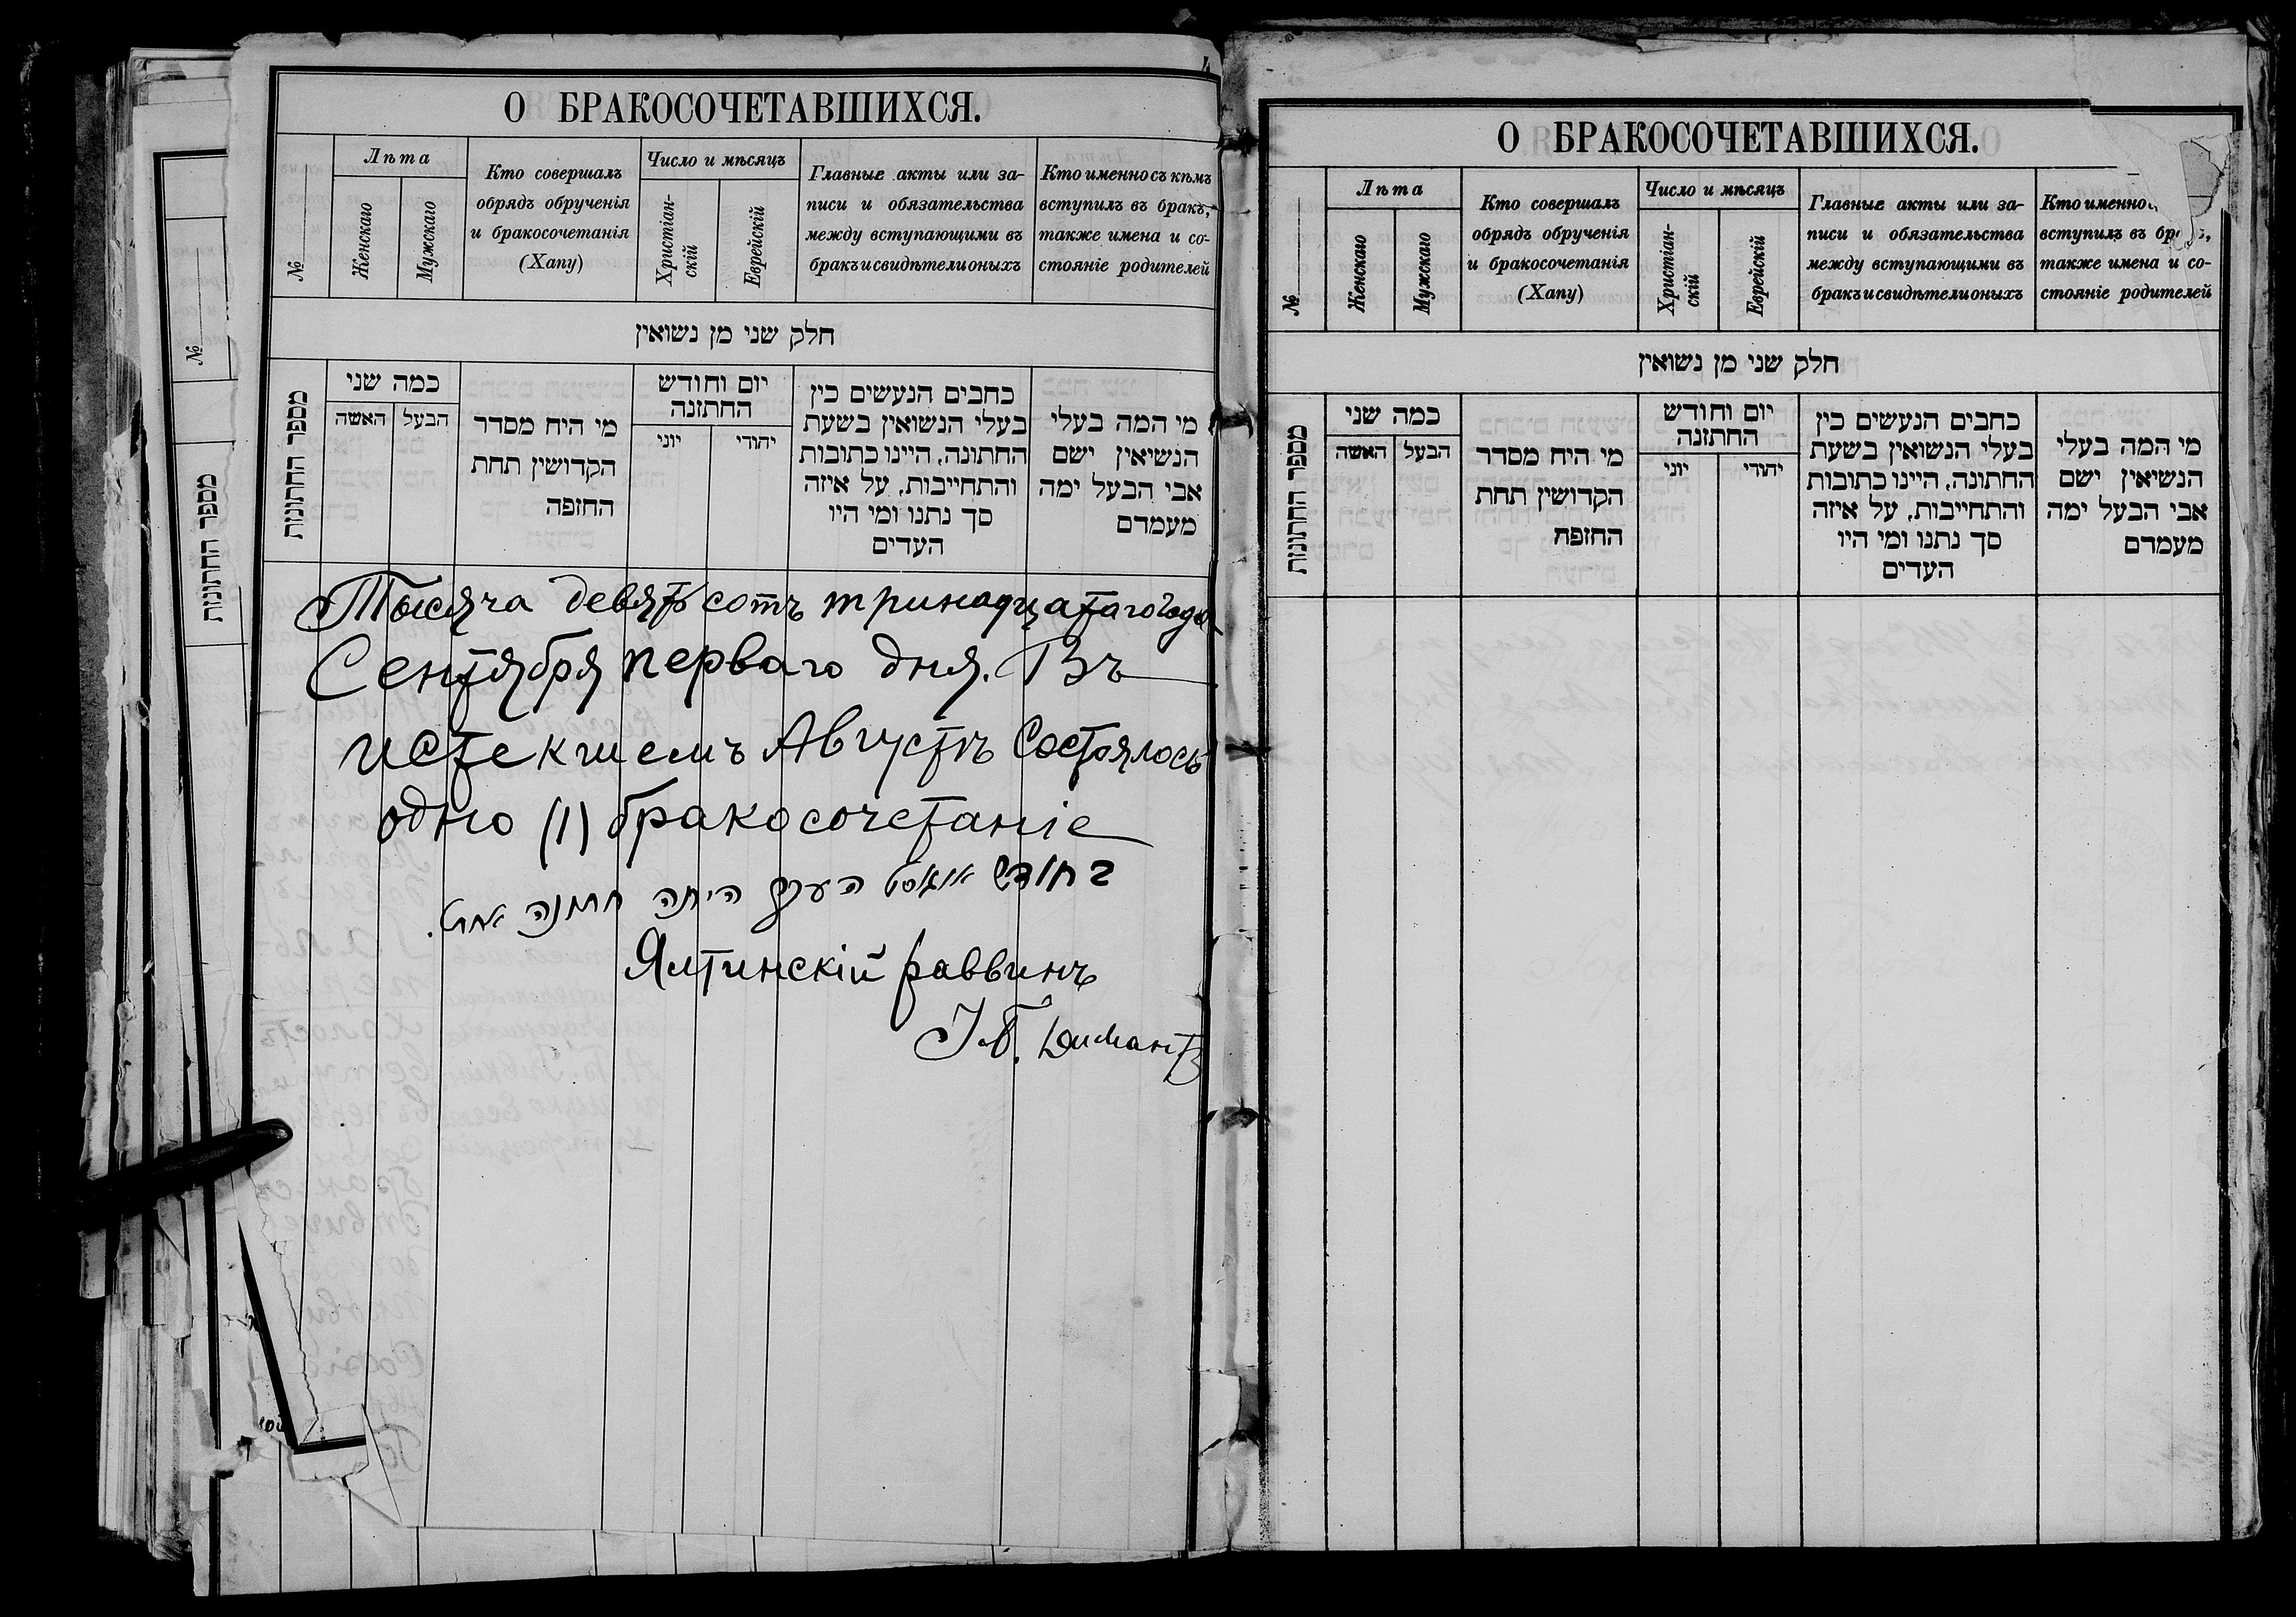 О БРАКОСОЧЕТАВШИХСЯ.
№
Лѣта
Женскаго
Мужскаго
Кто совершалъ
обрядъ обрученія
и бракосочетанія
(Хапу)
Число и мѣсяцъ
Христіан-
скій
Еврейскій
Главные акты или за-
писи и обязательства
между вступающими въ
бракъ и свидѣтели оныхъ
Кто именно съ кѣмъ
вступилъ въ бракъ,
также имена и со-
стояніе родителей
חלק שני מן נשואין
מספר החתונות
כמה שני
האשה
הבעל
מי היח מסדר
הקדושין תחת
החופה
יום וחודש
החתונה
יוני
יהודי
כחבים הנעשים כין
בעלי הנשואין בשעת
החתונה, היינו כתובות
והתחייבות, על איזה
סך נתנו ומי היו
העדים
מי המה בעלי
הנשיאין ישם
אבי הבעל ימה
מעמדם
Тысяча девятьсотъ тринадцатаго года
Сентября перваго дня. Въ
истекшемъ Августѣ Состоялось
одно (1) бракосочетаніе
בחודש אוגוסט העבר היתה חתונה אחת.
Ялтинскій раввинъ
І. Б. Димантъ
О БРАКОСОЧЕТАВШИХСЯ.
№
Лѣта
Женскаго
Мужскаго
Кто совершалъ
обрядъ обрученія
и бракосочетанія
(Хапу)
Число и мѣсяцъ
Христіан-
скій
Еврейскій
Главные акты или за-
писи и обязательства
между вступающими въ
бракъ и свидѣтели оныхъ
Кто именно
вступилъ въ
также имена и со-
стояніе родителей
חלק שני מן נשואין
מספר החתונות
כמה שני
האשה
הבעל
מי היח מסדר
הקדושין תחת
החופה
יום וחודש
החתונה
יוני
יהודי
כחבים הנעשים כין
בעלי הנשואין בשעת
החתונה, היינו כתובות
והתחייבות, על איזה
סך נתנו ומי היו
העדים
מי המה בעלי
הנשיאין ישם
אבי הבעל ימה
מעמדם
№
מספר החתונות